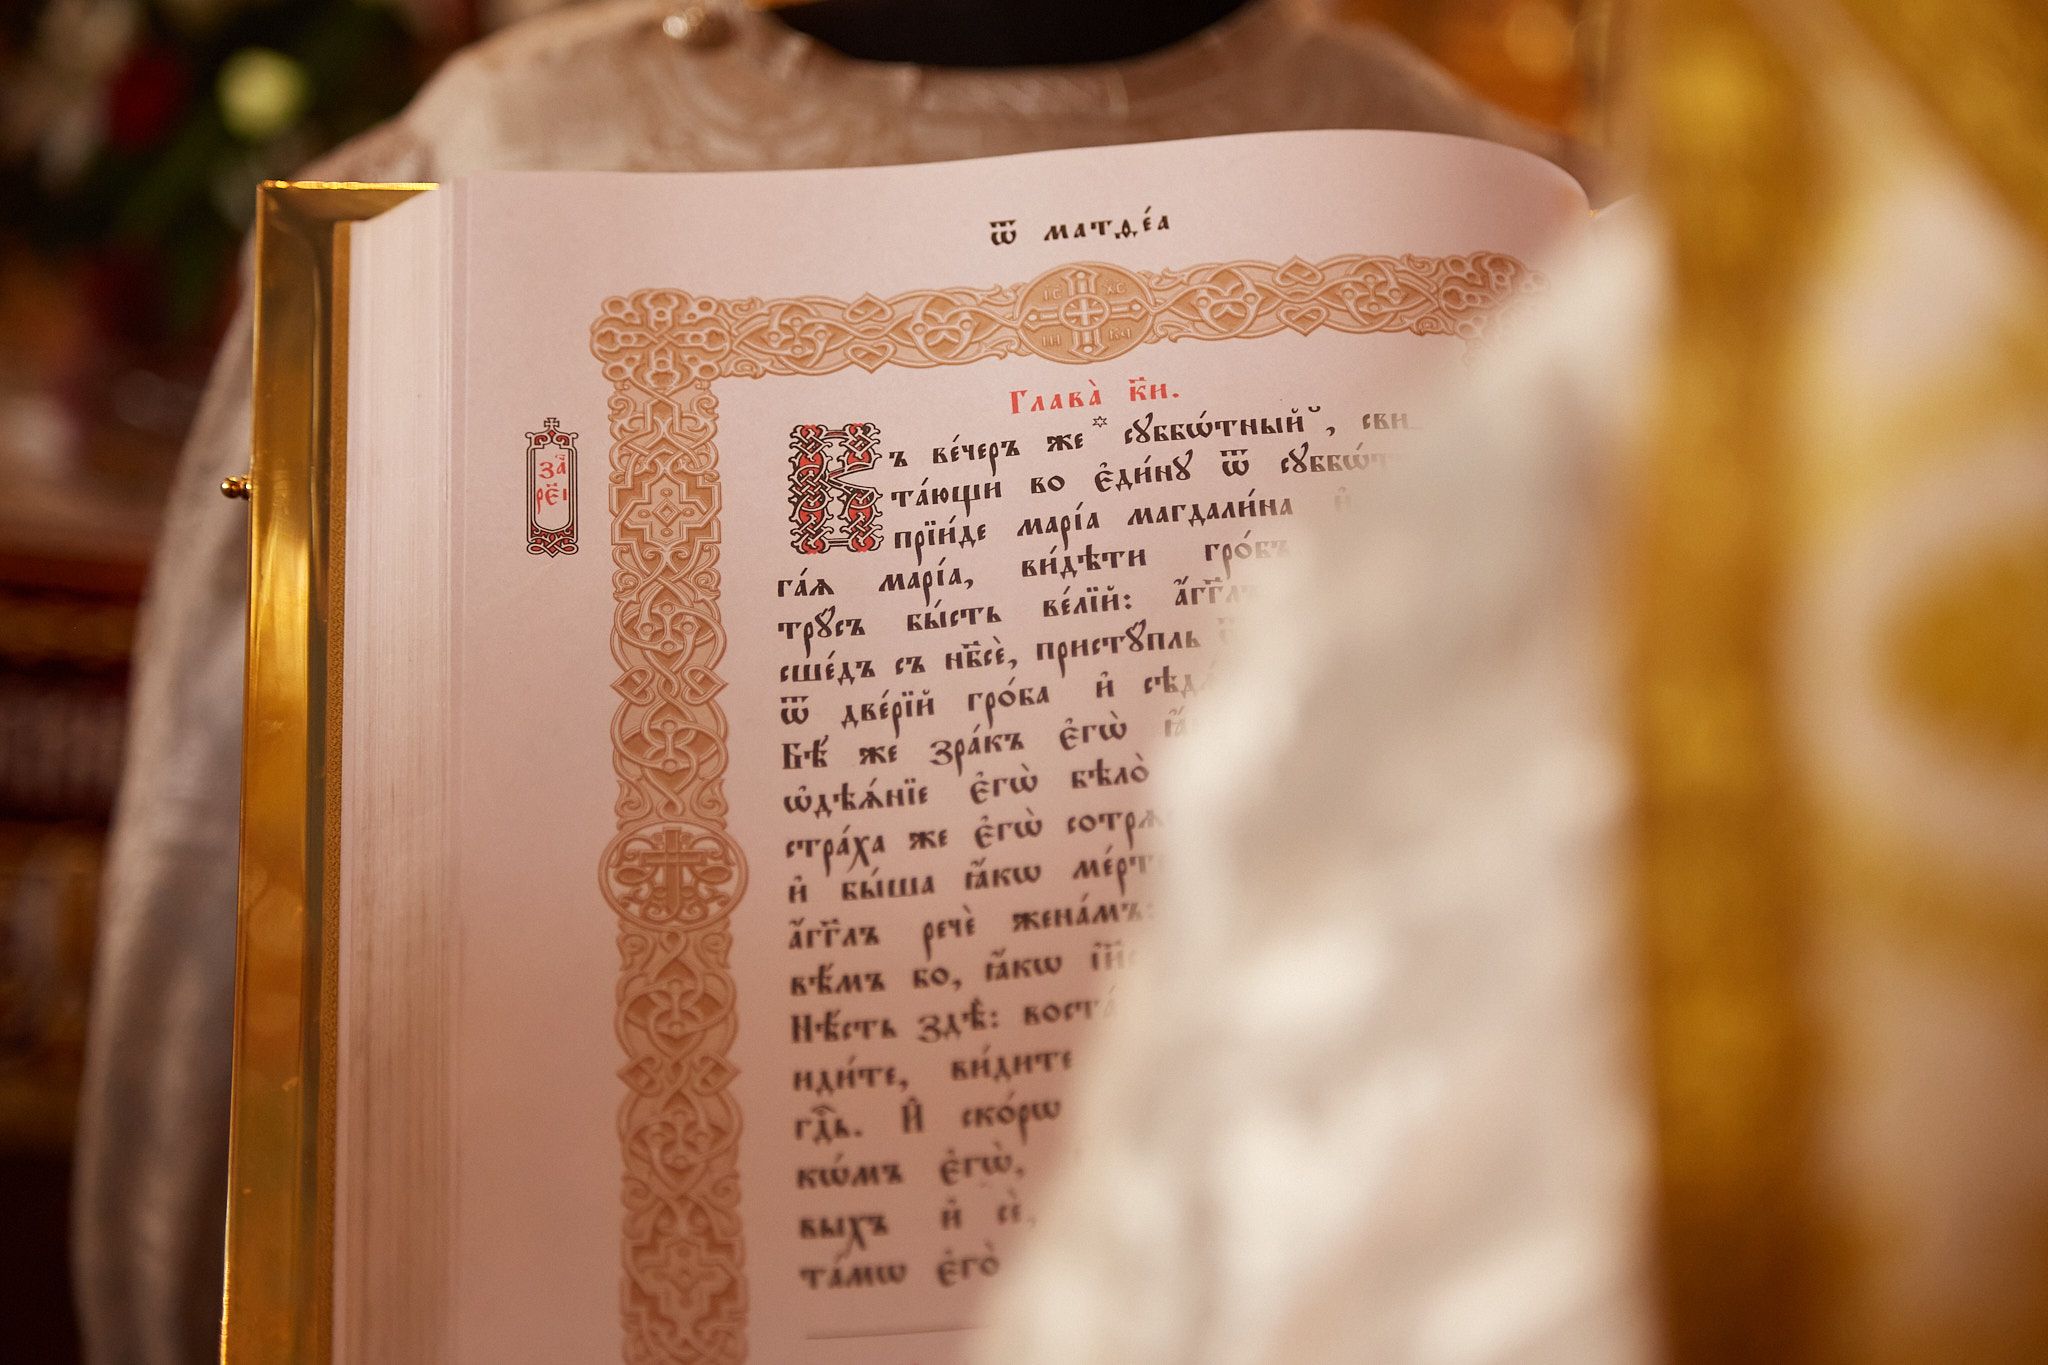 Ѿ матѳе́а
І҆С ХС
НИ КА
Глава̀ к҃и.
за҄
рє҃і
Въ ве́черъ же * сꙋббѡ́тный ,
та́ющи во є҆ди́нꙋ ѿ
прїи́де марі́а магдали́на
га́ѧ марі́а, ви́дѣти гро́бъ
трꙋ́съ бы́сть ве́лїй: а҆́гг҃лъ
сше́дъ съ нб҃сѐ, пристꙋ́пль
ѿ две́рїй гро́ба и҆
Бѣ́ же зра́къ є҆гѡ̀
ѡ҆дѣѧ́нїе є҆гѡ̀ бѣло̀
стра́ха же є҆гѡ̀
и҆ бы́ша ꙗ҆́кѡ
а҆́гг҃лъ речѐ жена́мъ:
вѣ́мъ бо, ꙗ҆́кѡ
Нѣ́сть здѣ̀:
иди́те, ви́дите
гдⷭ҇ь. И҆ ско́рѡ
кѡ́мъ є҆гѡ̀,
выхъ и҆ сѐ,
та́мѡ є҆го̀